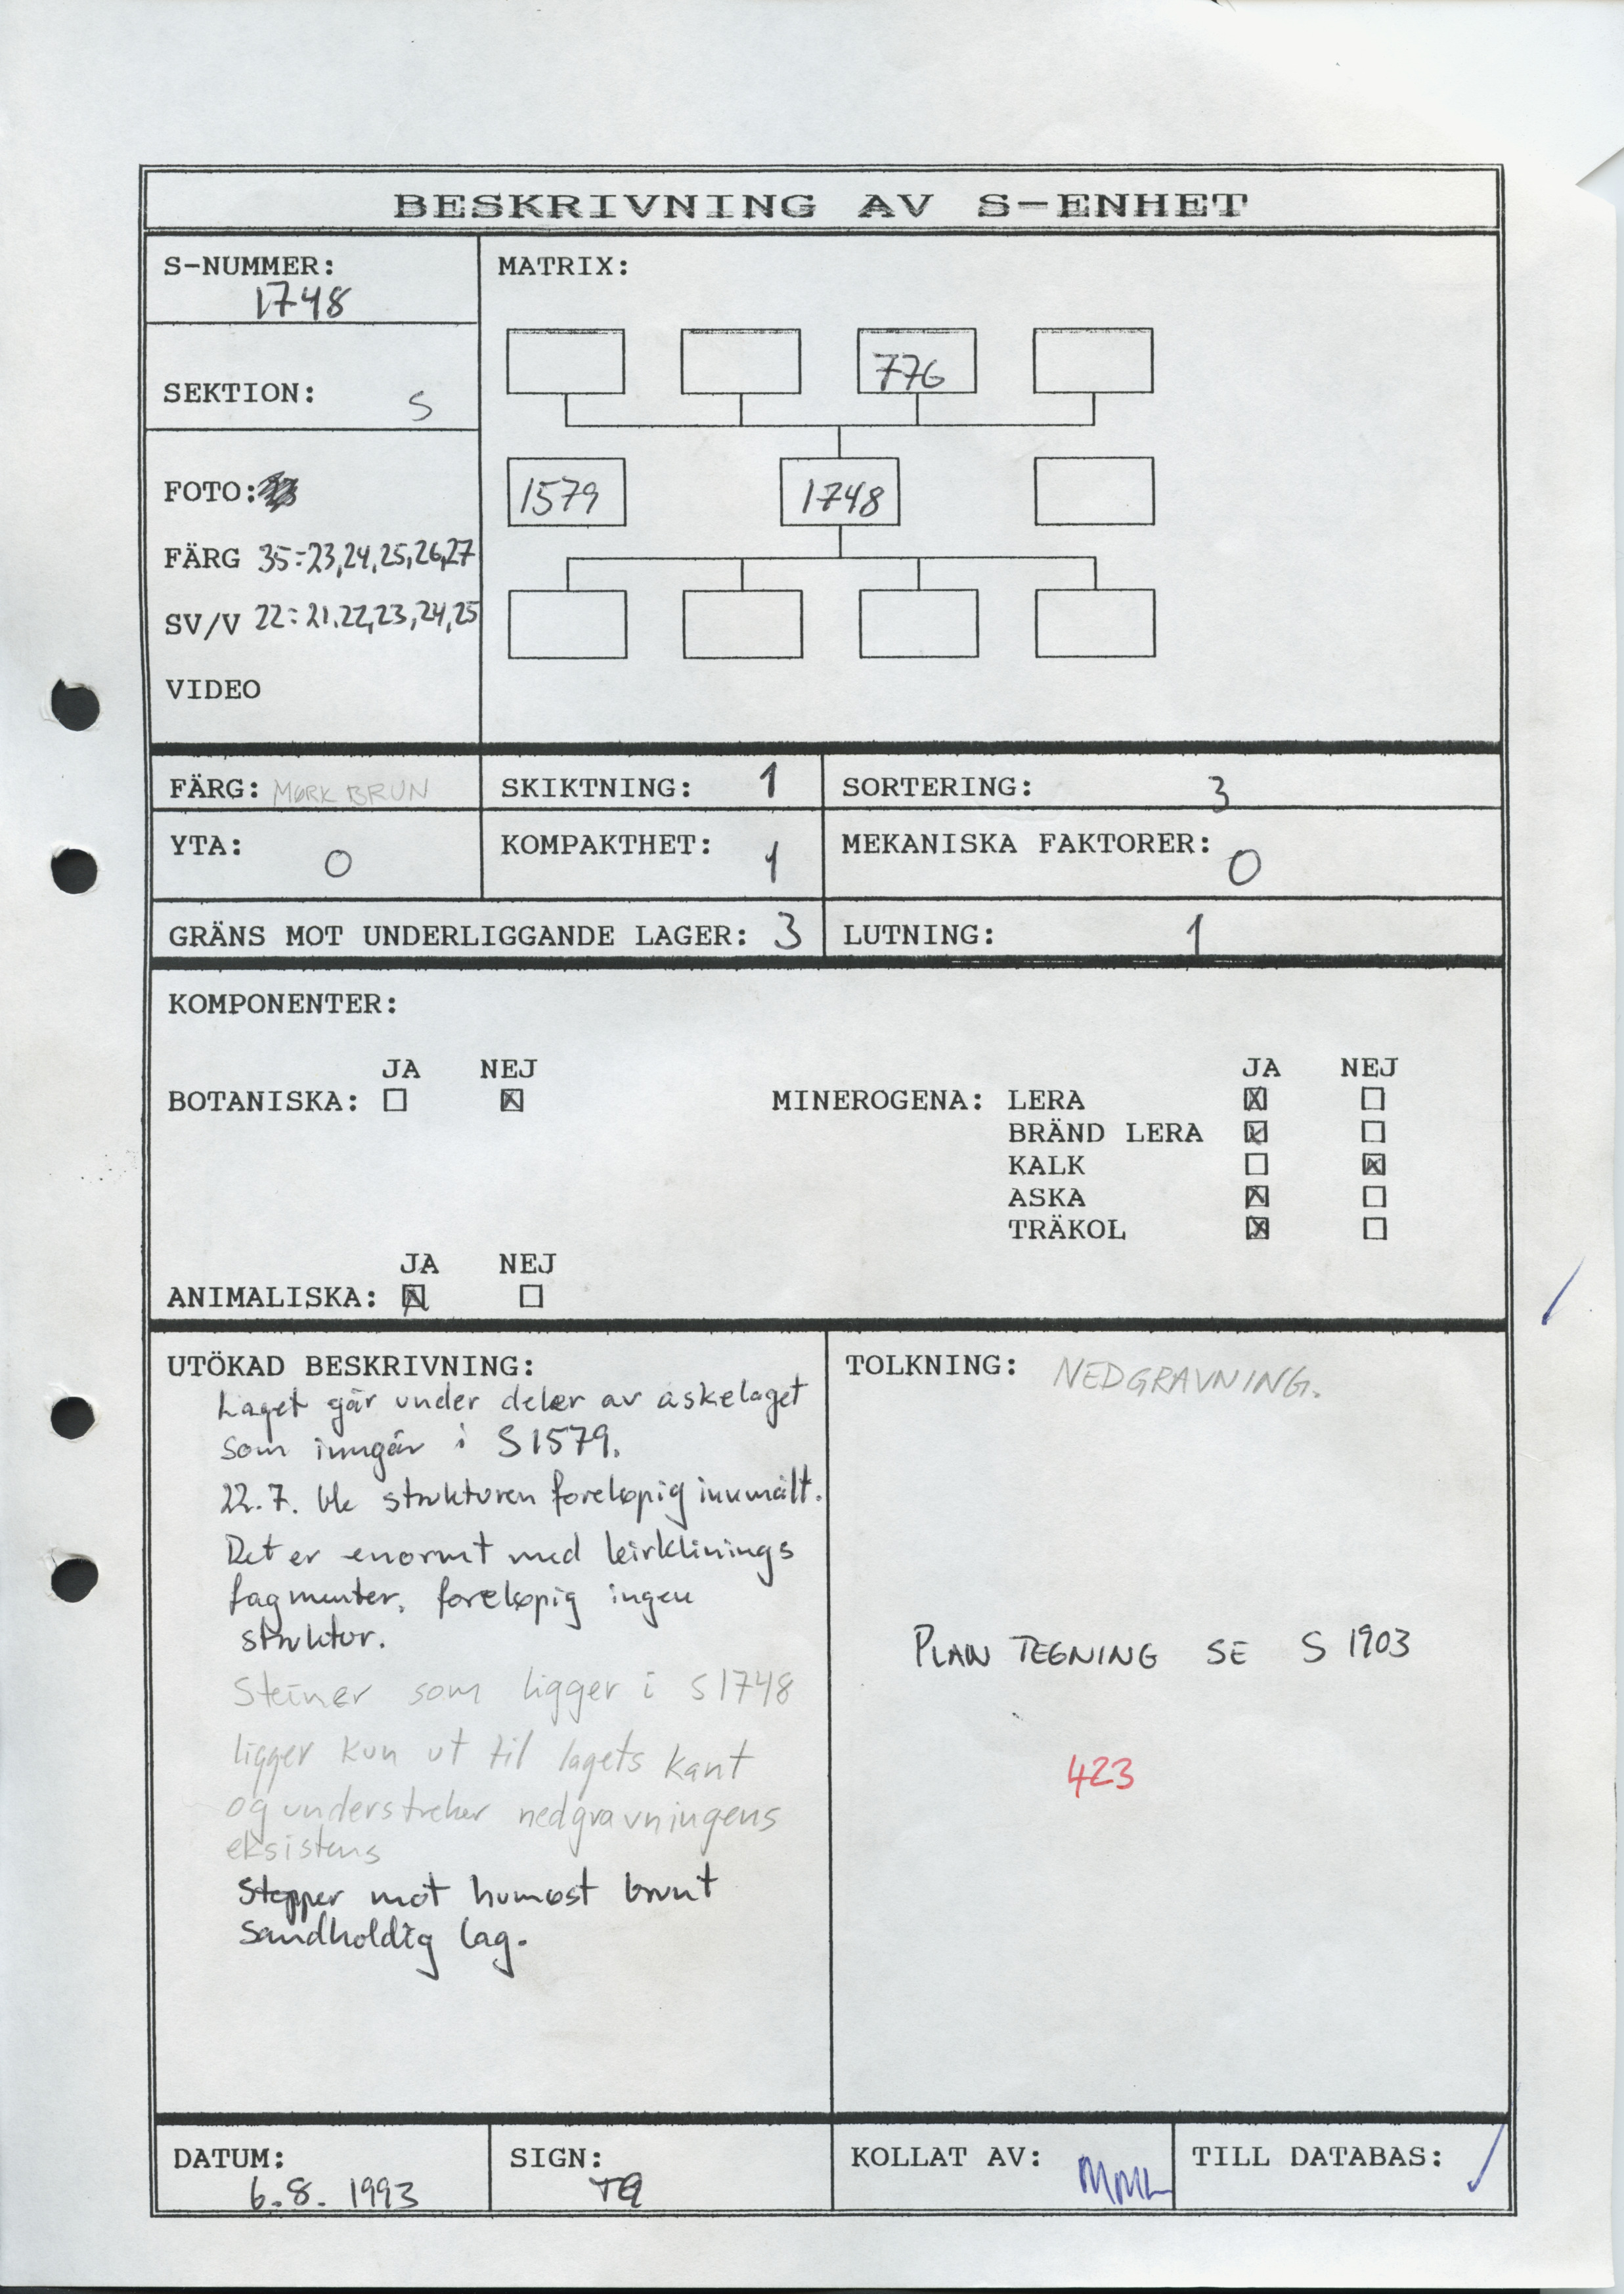 BESKRIVNING AV S-ENHET
S-NUMMER:
1748
MATRIX:
776
SEKTION: S
FOTO:
1579 1748
FÄRG 35=23,24,25,26,27
SV/V 22=21,22,23,24,25
VIDEO
FÄRG: MØRK BRUN SKIKTNING: 1 SORTERING: 3
YTA: 0 KOMPAKTHET: 1 MEKANISKA FAKTORER: 0
GRÄNS MOT UNDERLIGGANDE LAGER: 3 LUTNING: 1
KOMPONENTER:
JA NEJ
BOTANISKA: ☐ ☒
JA NEJ
MINEROGENA: LERA ☒ ☐
BRÄND LERA ☒ ☐
KALK ☐ ☒
ASKA ☒ ☐
TRÄKOL ☒ ☐
JA NEJ
ANIMALISKA: ☒ ☐
UTÖKAD BESKRIVNING:
Laget går under deler av askelaget
som inngår i S1579.
22.7. ble strukturen foreløpig innmålt.
Det er enormt med leirklinings
fagmenter, foreløpig ingen
struktur.
Steiner som ligger i S1748
ligger kun ut til lagets kant
og understreker nedgravningens
eksistens
Stopper mot humøst brunt
sandholdig lag.
TOLKNING: NEDGRAVNING.
PLAN TEGNING SE S 1903
423
DATUM: SIGN: KOLLAT AV: TILL DATABAS:
6.8. 1993 MML